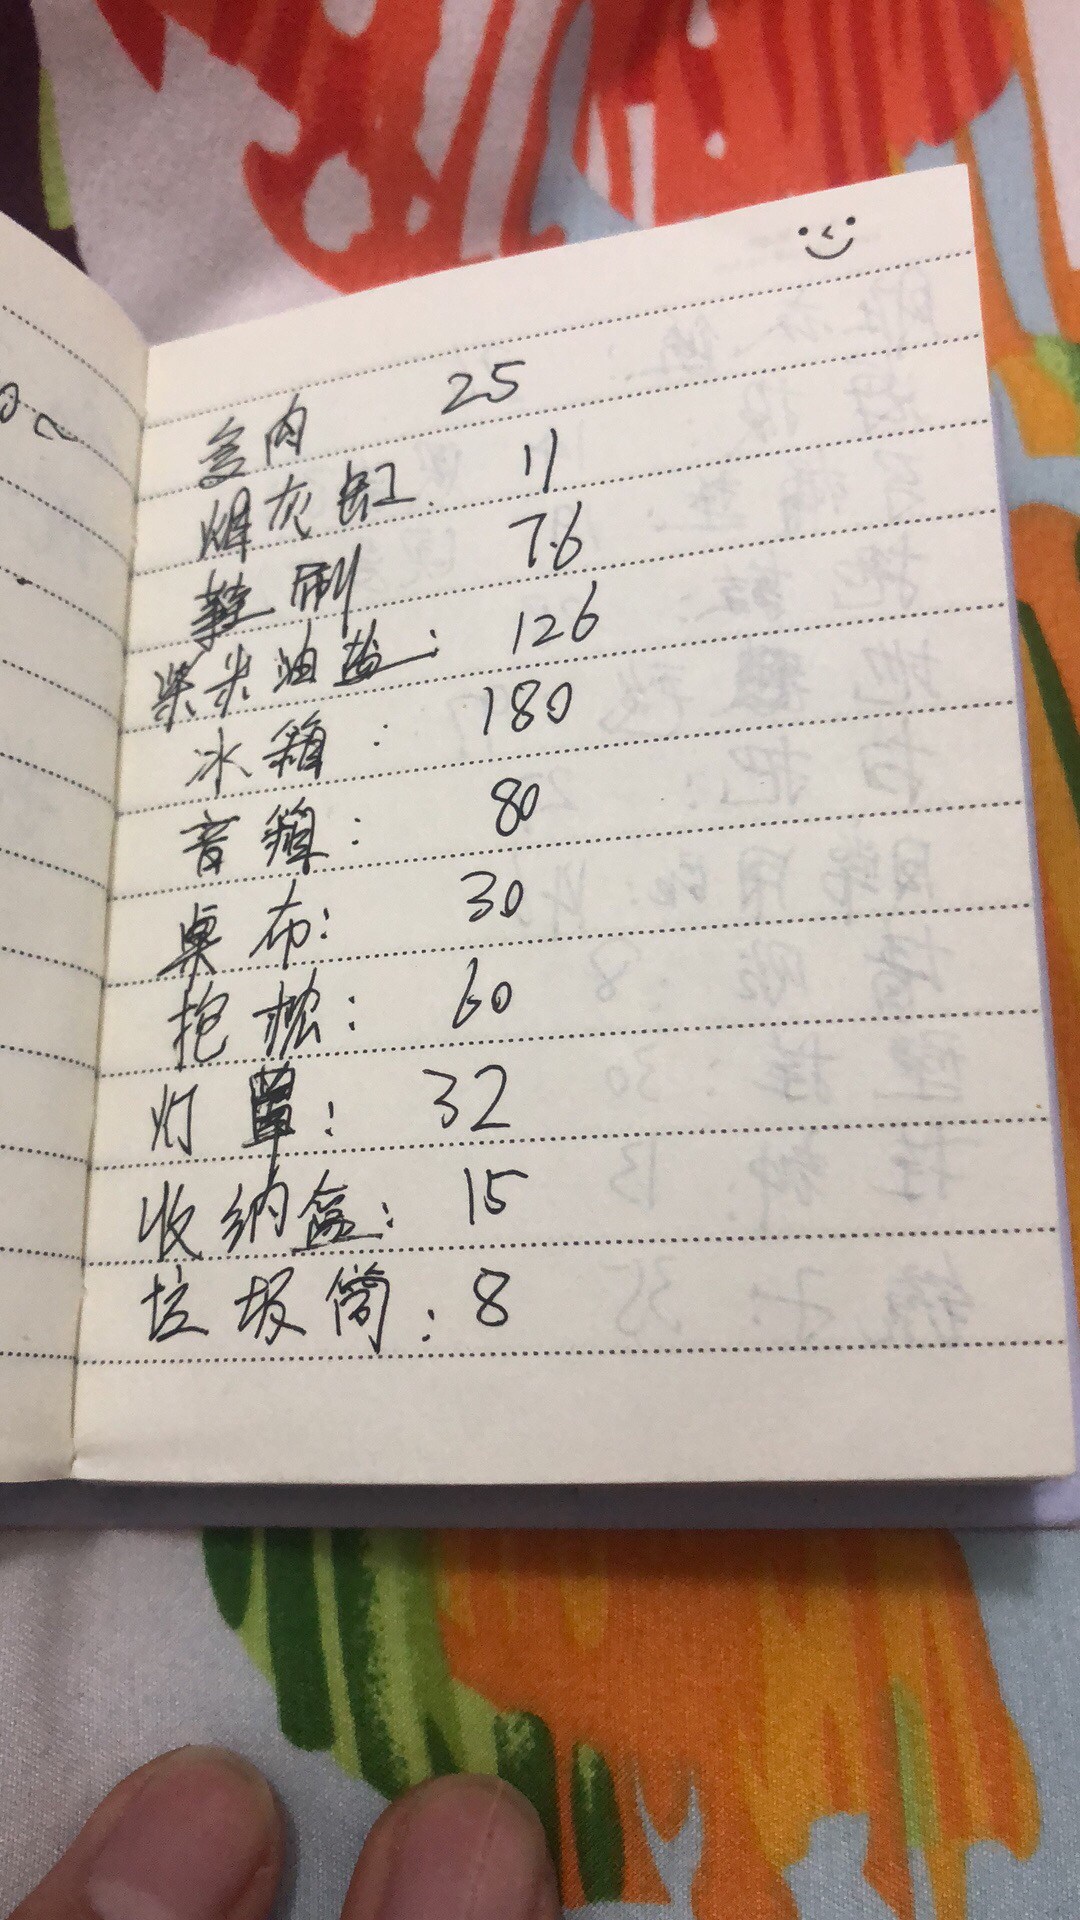 多肉 25
烟灰缸: 11
鞋刷 7.6
柴米油盐: 126
冰箱: 180
音箱: 80
桌布: 30
抱枕: 60
灯罩: 32
收纳盒: 15
垃圾筒: 8